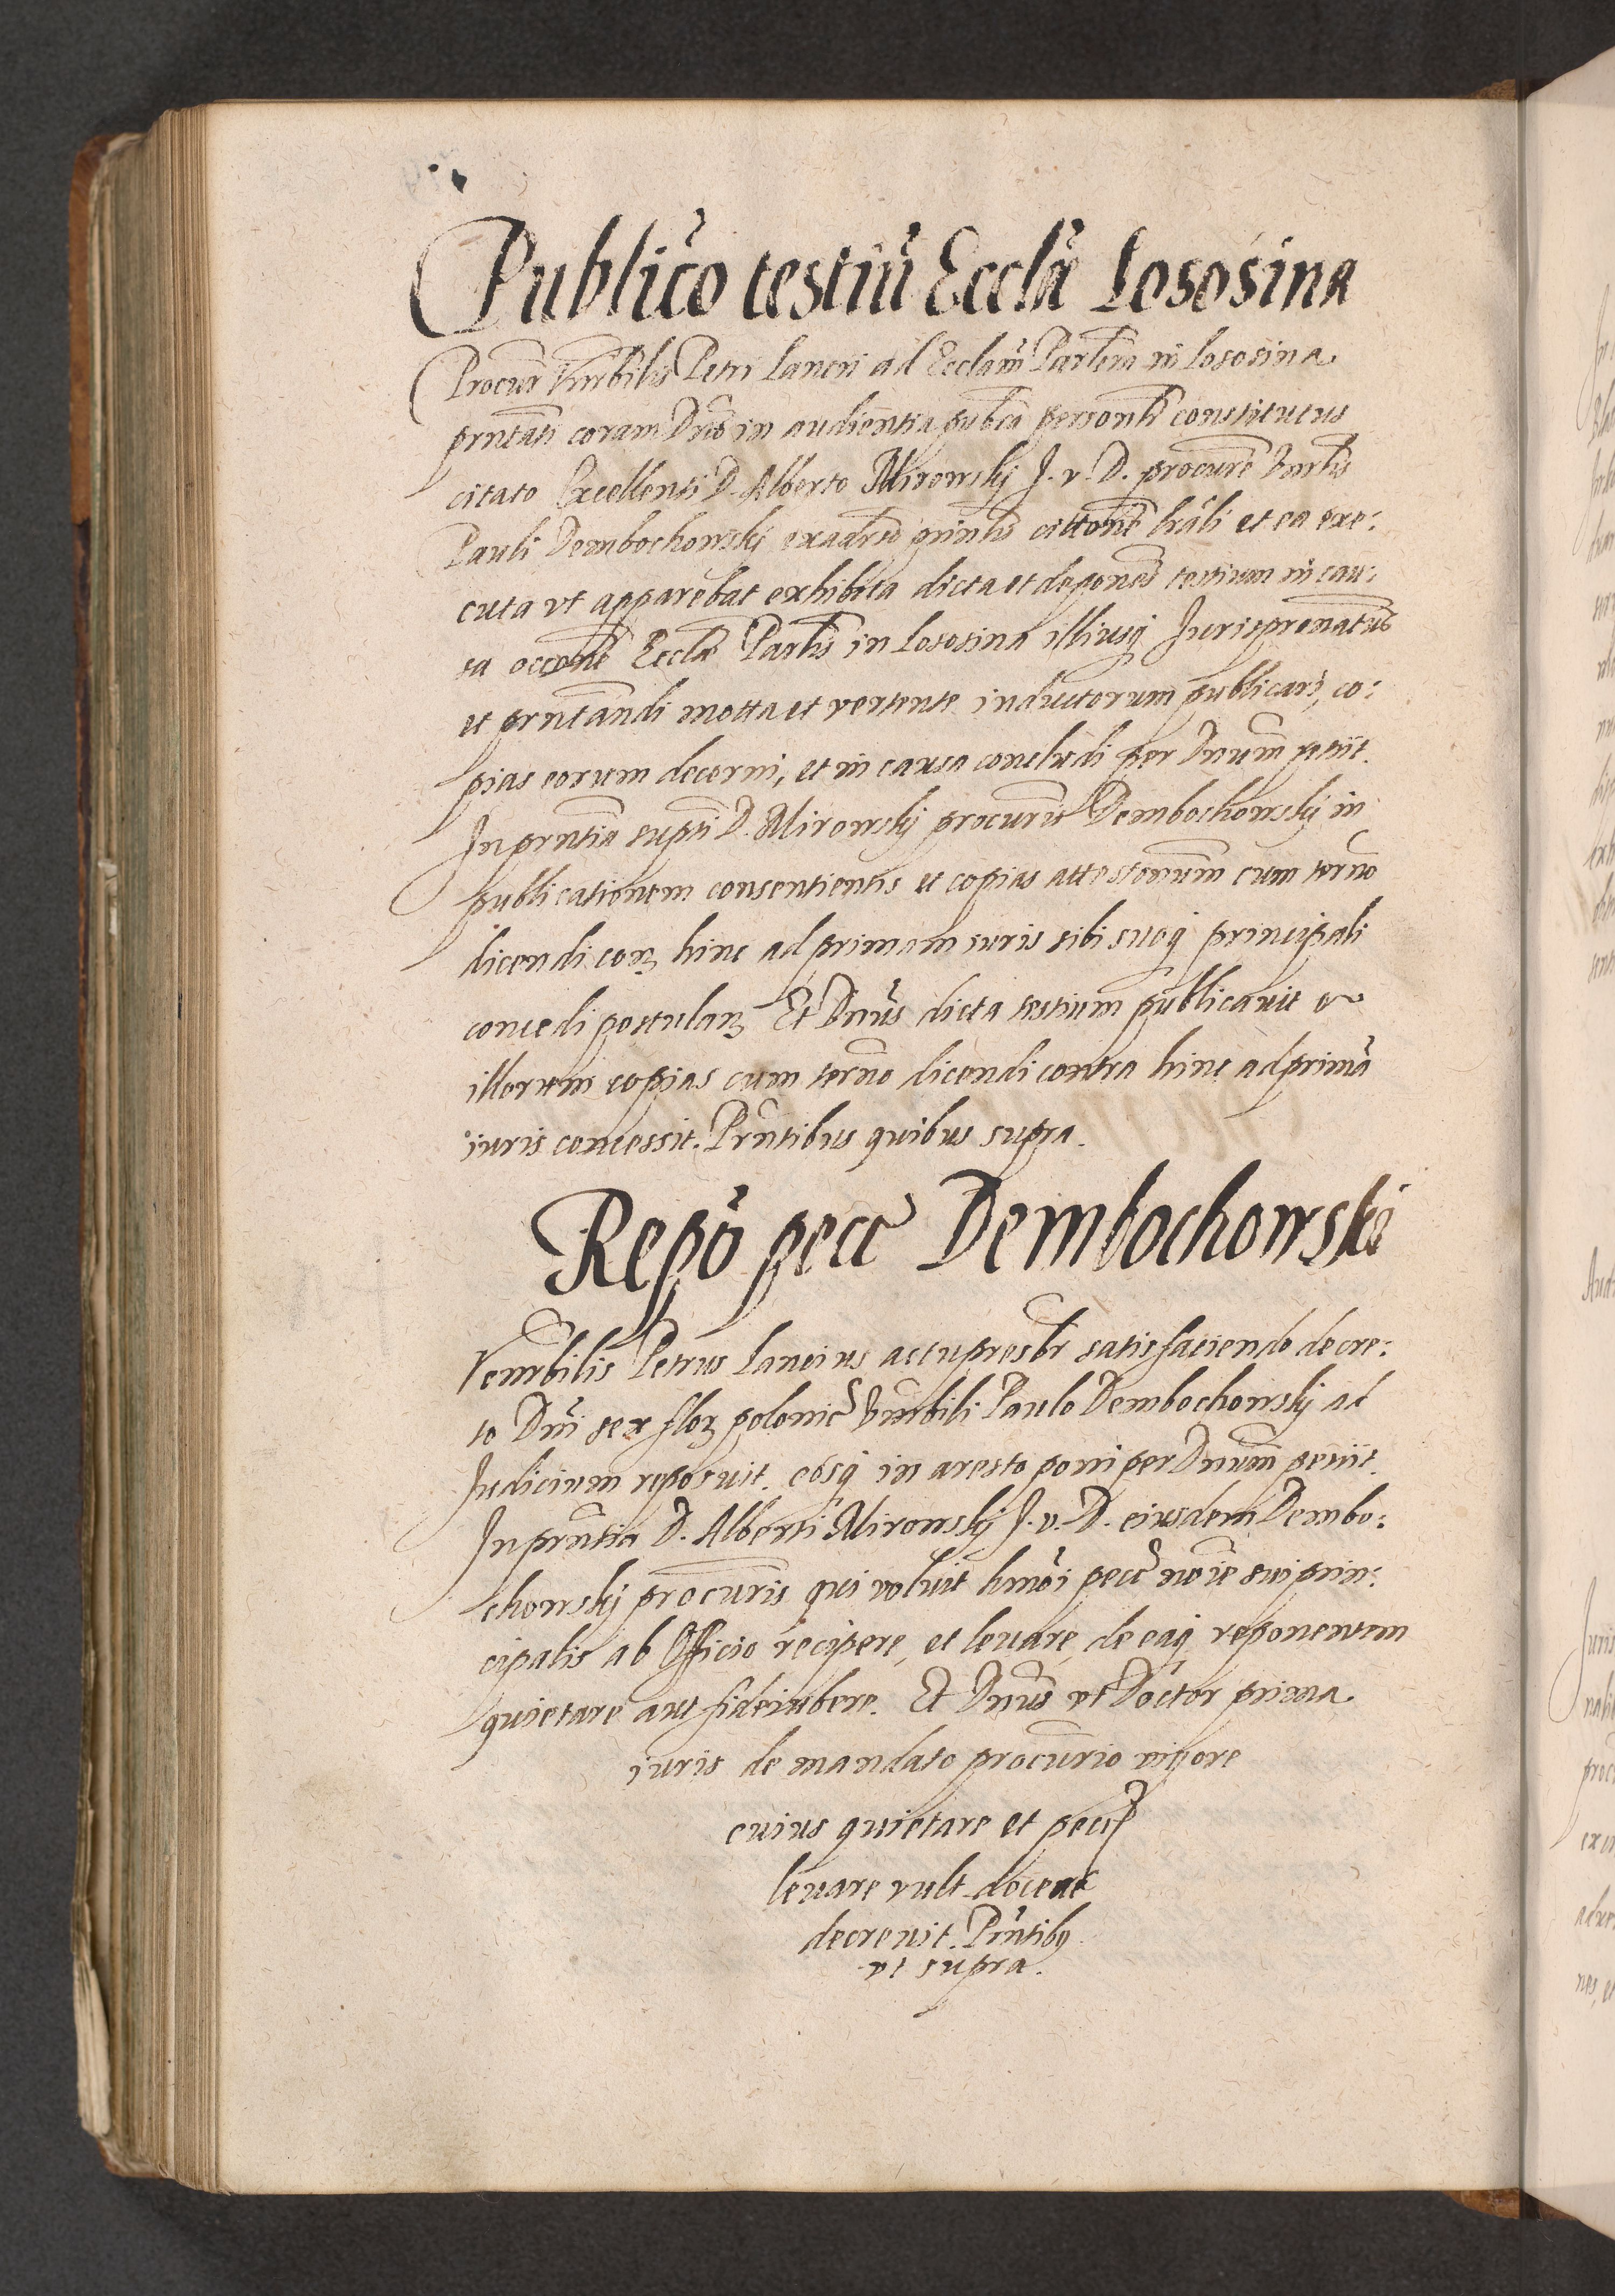 Publico testiū Ecclē Lososina
Procur Vnrbilis Petri Lancri ad Ecclam Parlem in Lososina
prntati coram Dno in audientia pubca personlr constitutus
citato Excellenti D. Alberto Mirowskj J. v. D. procure Vnrlis
Pauli Dembochowskj exadrso prinlis cittone lrali et ea exe:
cuta vt apparebat exhibita dicta et depones testium in cau:
sa occone Eccle Parlis in Lososina illiusq Jurispronatus
et prntandi motta et vertente inductorum publicari, co:
pias eorum decerni, et in causa concludi per Dnum petiit.
In prntia supti D. Mirowskj procuris Dembochowskj in
publicationem consentientis et copias attestonum cum terno
dicendi con hinc ad primam iuris sibi suoq principali
concedi postulan Et Dnus dicta testium publicauit et
illorum copias cum terno dicendi contra hinc ad primā
iuris concessit. Prntibus quibus supra.
Repō pecc Dembochowski
Venrbilis Petrus Lancius actu presbr satisfaciendo decre:
to Dni sex flor polonic Vnrbili Paulo Dembochowskj ad
Judicium reposuit. eosq in aresto poni per Dnum petiit.
In prntia D. Alberti Mirowskj J. v. D. eiusdem Dembo:
chowskj procuris qui voluit hmoi pecc noie sui prin:
cipalis ab Officio recipere, et leuare, de eaq reponentem
quietare aut fideiubere. Et Dnus vt Doctor prima
iuris de mandato procurio vigore
cuius quietare et pecc
leuare vult doceat
decreuit. Prntibq
vt supra.